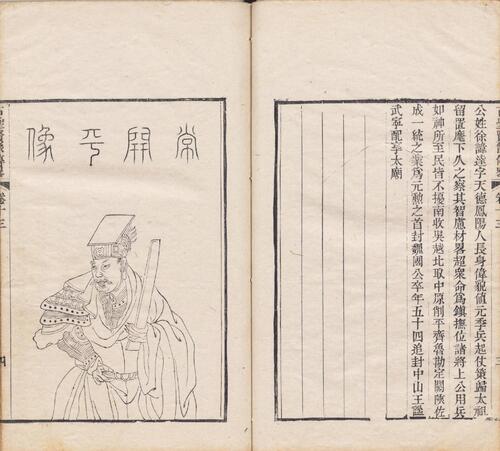 公姓徐諱達字天德鳳陽人長身偉貌値元季兵起仗策歸太祖
留置麾下久之察其智慮材畧超衆命爲鎭撫位諸將上公用兵
如神所至民皆不擾南收吳越北取中原削平齊魯勘定關陝佐
成一統之業爲元勲之首封魏國公卒年五十四追封中山王謚
武寧配享太廟
常開平像
卷十三
四